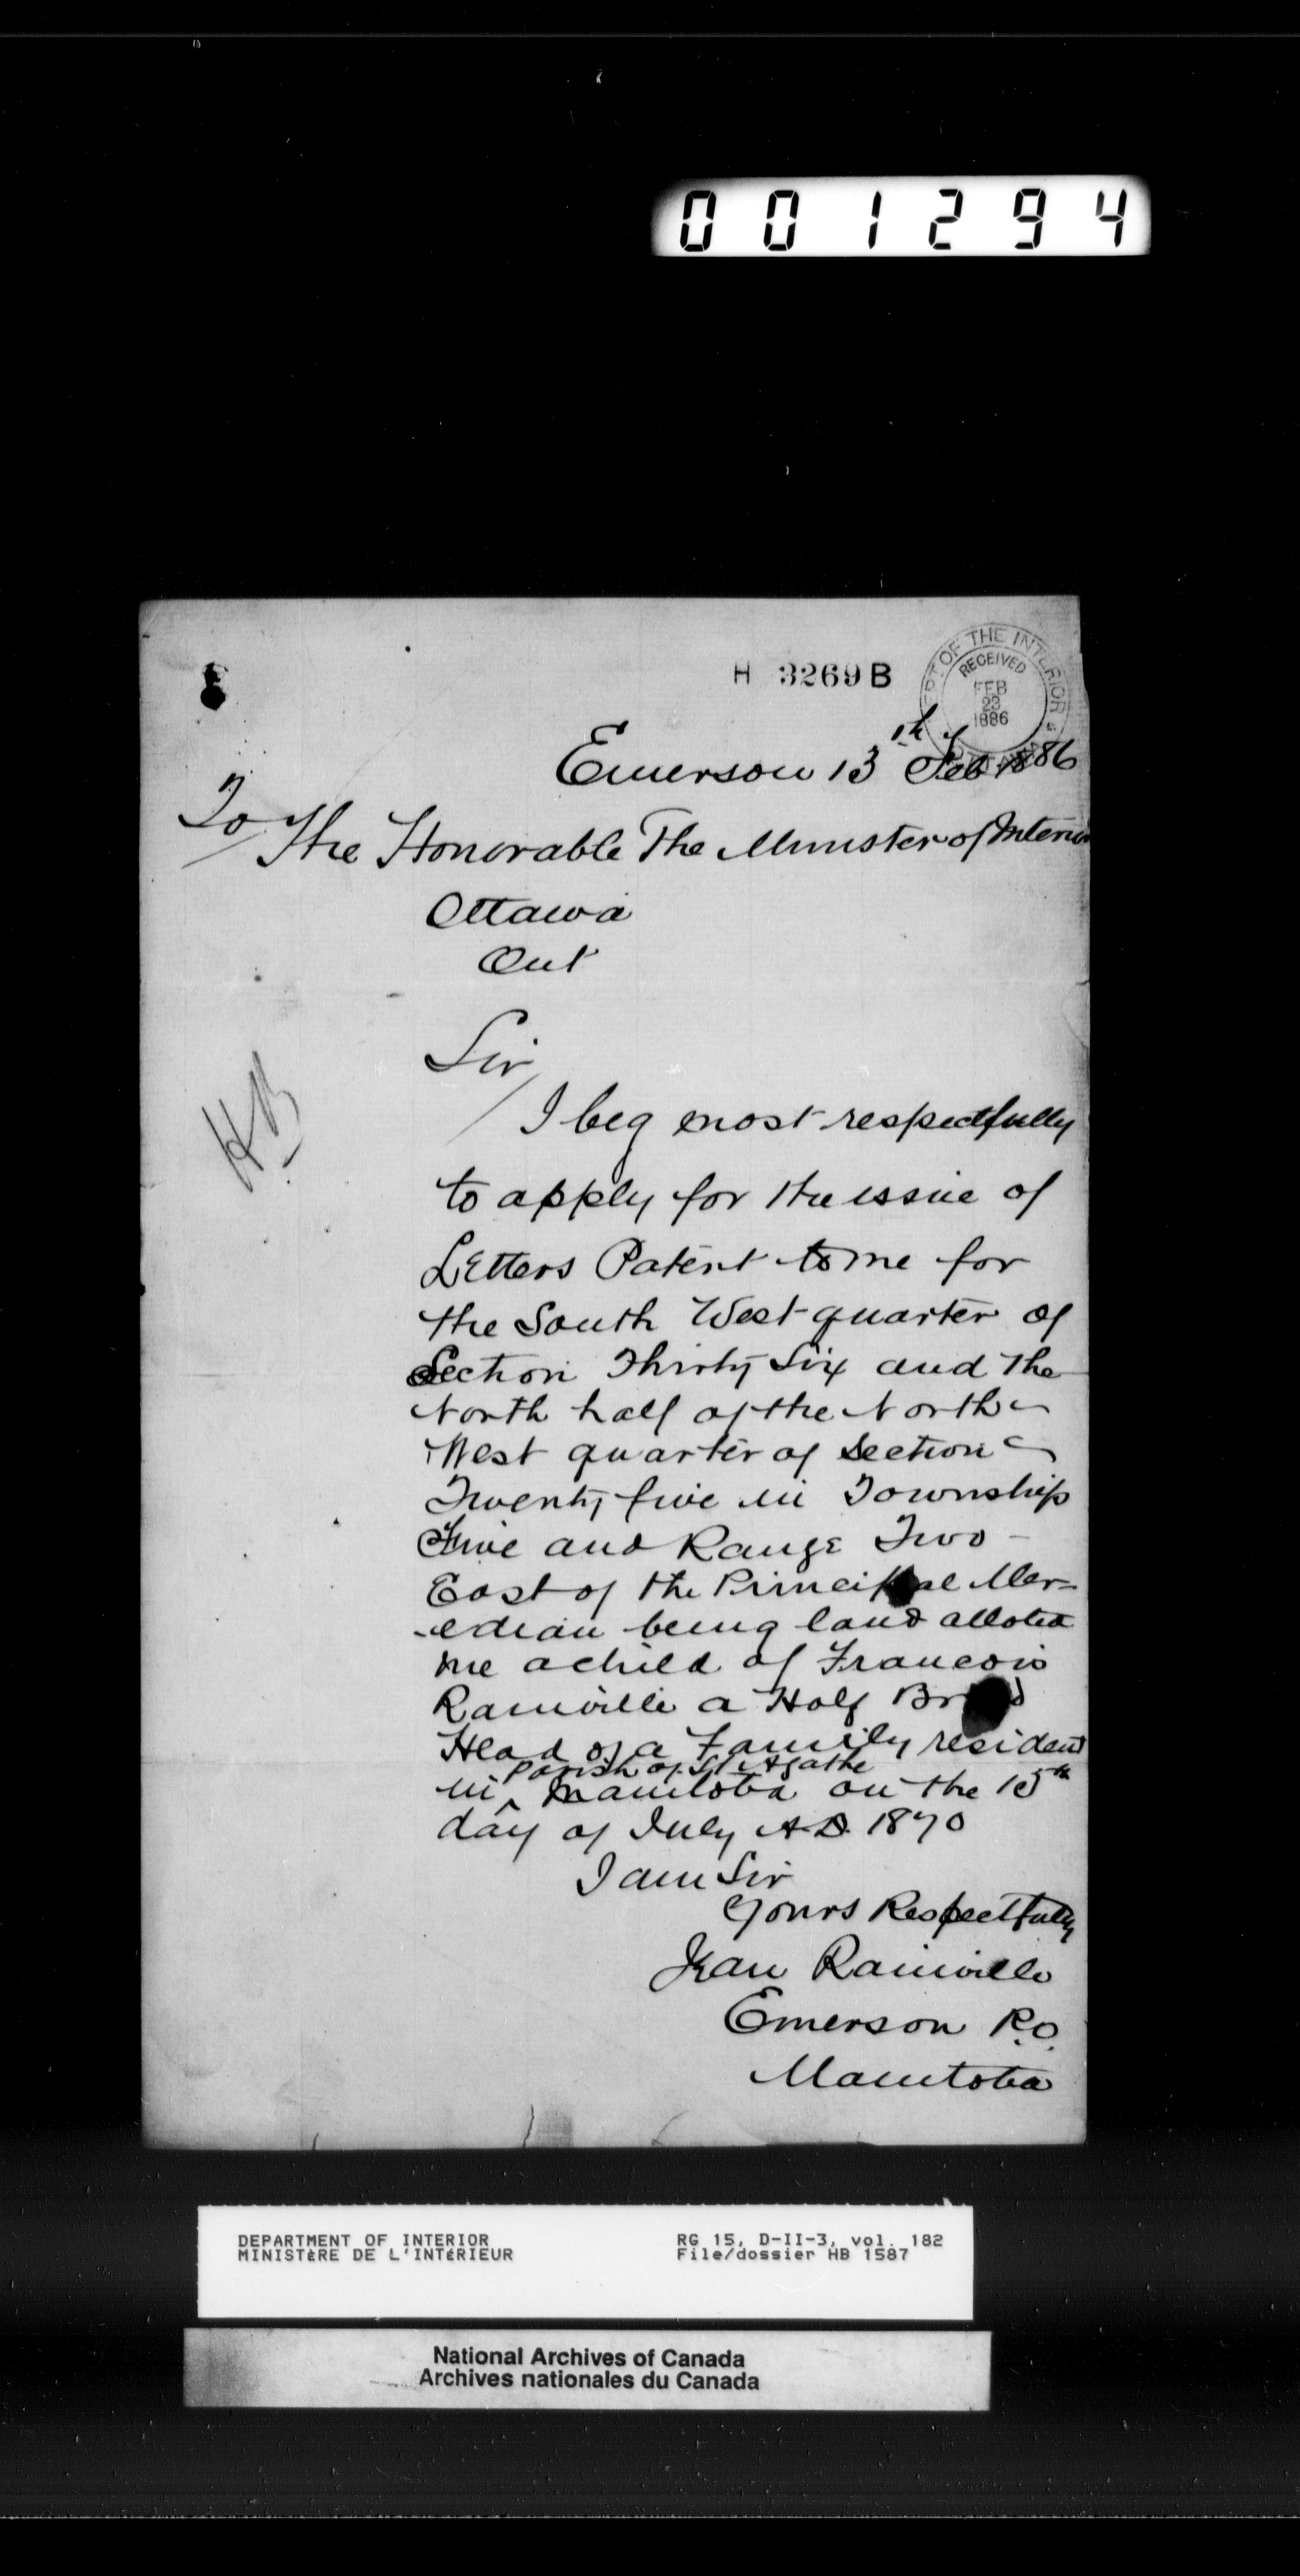 001294
H 3269 B
DEPT OF THE INTERIOR
RECEIVED
FEB
23
1886
Emerson 13th Feb 1886
To
The Honorable The Minister of Interior
Ottawa
Ont
Sir
HB
I beg most respectfully
to apply for the issue of
Letters Patent to me for
the South West quarter of
Section Thirty Six and the
North half of the North
West quarter of Section
Twenty five in Township
Five and Range Two
East of the Principal Mer-
-edian being land alloted
me a child of Francois
Rainville a Half Breed
Head of a Family resident
in ^ Parish of St Agathe Manitoba on the 15th
day of July A.D. 1870
I am Sir
Yours Respectfully
Jean Rainville
Emerson P.O.
Manitoba
DEPARTMENT OF INTERIOR
MINISTÈRE DE L'INTÉRIEUR
RG 15, D-II-3, vol. 182
File/dossier HB 1587
National Archives of Canada
Archives nationales du Canada